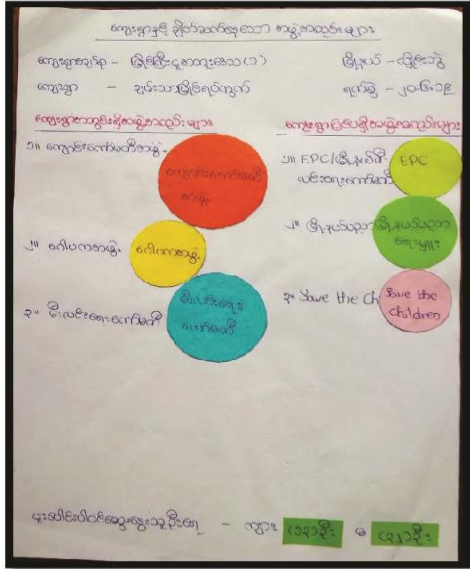 ကျေးရွာနှင့် ချိတ်ဆက်နေသော အဖွဲ့အစည်းများ
ကျေးရွာအုပ်စု - မြို့နယ် - လှိုင်းဘွဲ
ကျေးရွာ - ချမ်းသာမြိုင်ရပ်ကွက် ရက်စွဲ - ၂၀.၆.၁၉
ကျေးရွာအတွင်းရှိအဖွဲ့အစည်းများ
၁။ ကျောင်းကော်မတီအဖွဲ့
ကျောင်းကော်မတီ
အဖွဲ့
၂။ ဂေါပကအဖွဲ့
ဂေါပကအဖွဲ့
၃။ မီးလင်းရေးကော်မတီ
မီးလင်းရေး
ကော်မတီ
ကျေးရွာပြင်ပရှိအဖွဲ့အစည်းများ
၁။ EPC/မြို့နယ်မီး
လင်းရေးကော်မတီ
EPC
၂။ မြို့နယ်ပညာ
မြို့နယ်ပညာ
ရေးမှူး
၃။ Save the Ch
Save the
children
ပူးပေါင်းပါဝင်ဆွေးနွေးသူဦးရေ - ကျား မ